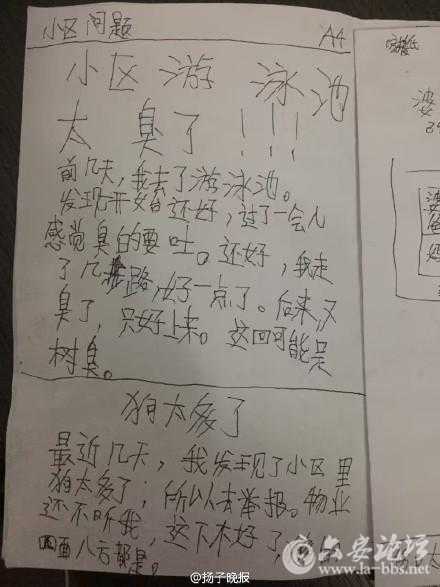 小区问题 A4
小区游泳池
太臭了!!!
前几天，我去了游泳池。
发现开始还好，过了一会儿
感觉臭的要吐。还好，我走
了几步路，好一点了。后来，又
臭了，只好上来。这回可能是
树臭。
狗太多了
最近几天，我发现了小区里
狗太多了，所以去举报。物业
还不听我，这下不好了，
面八方都是。
婆
@扬子晚报
六安论坛
la-bbs.net